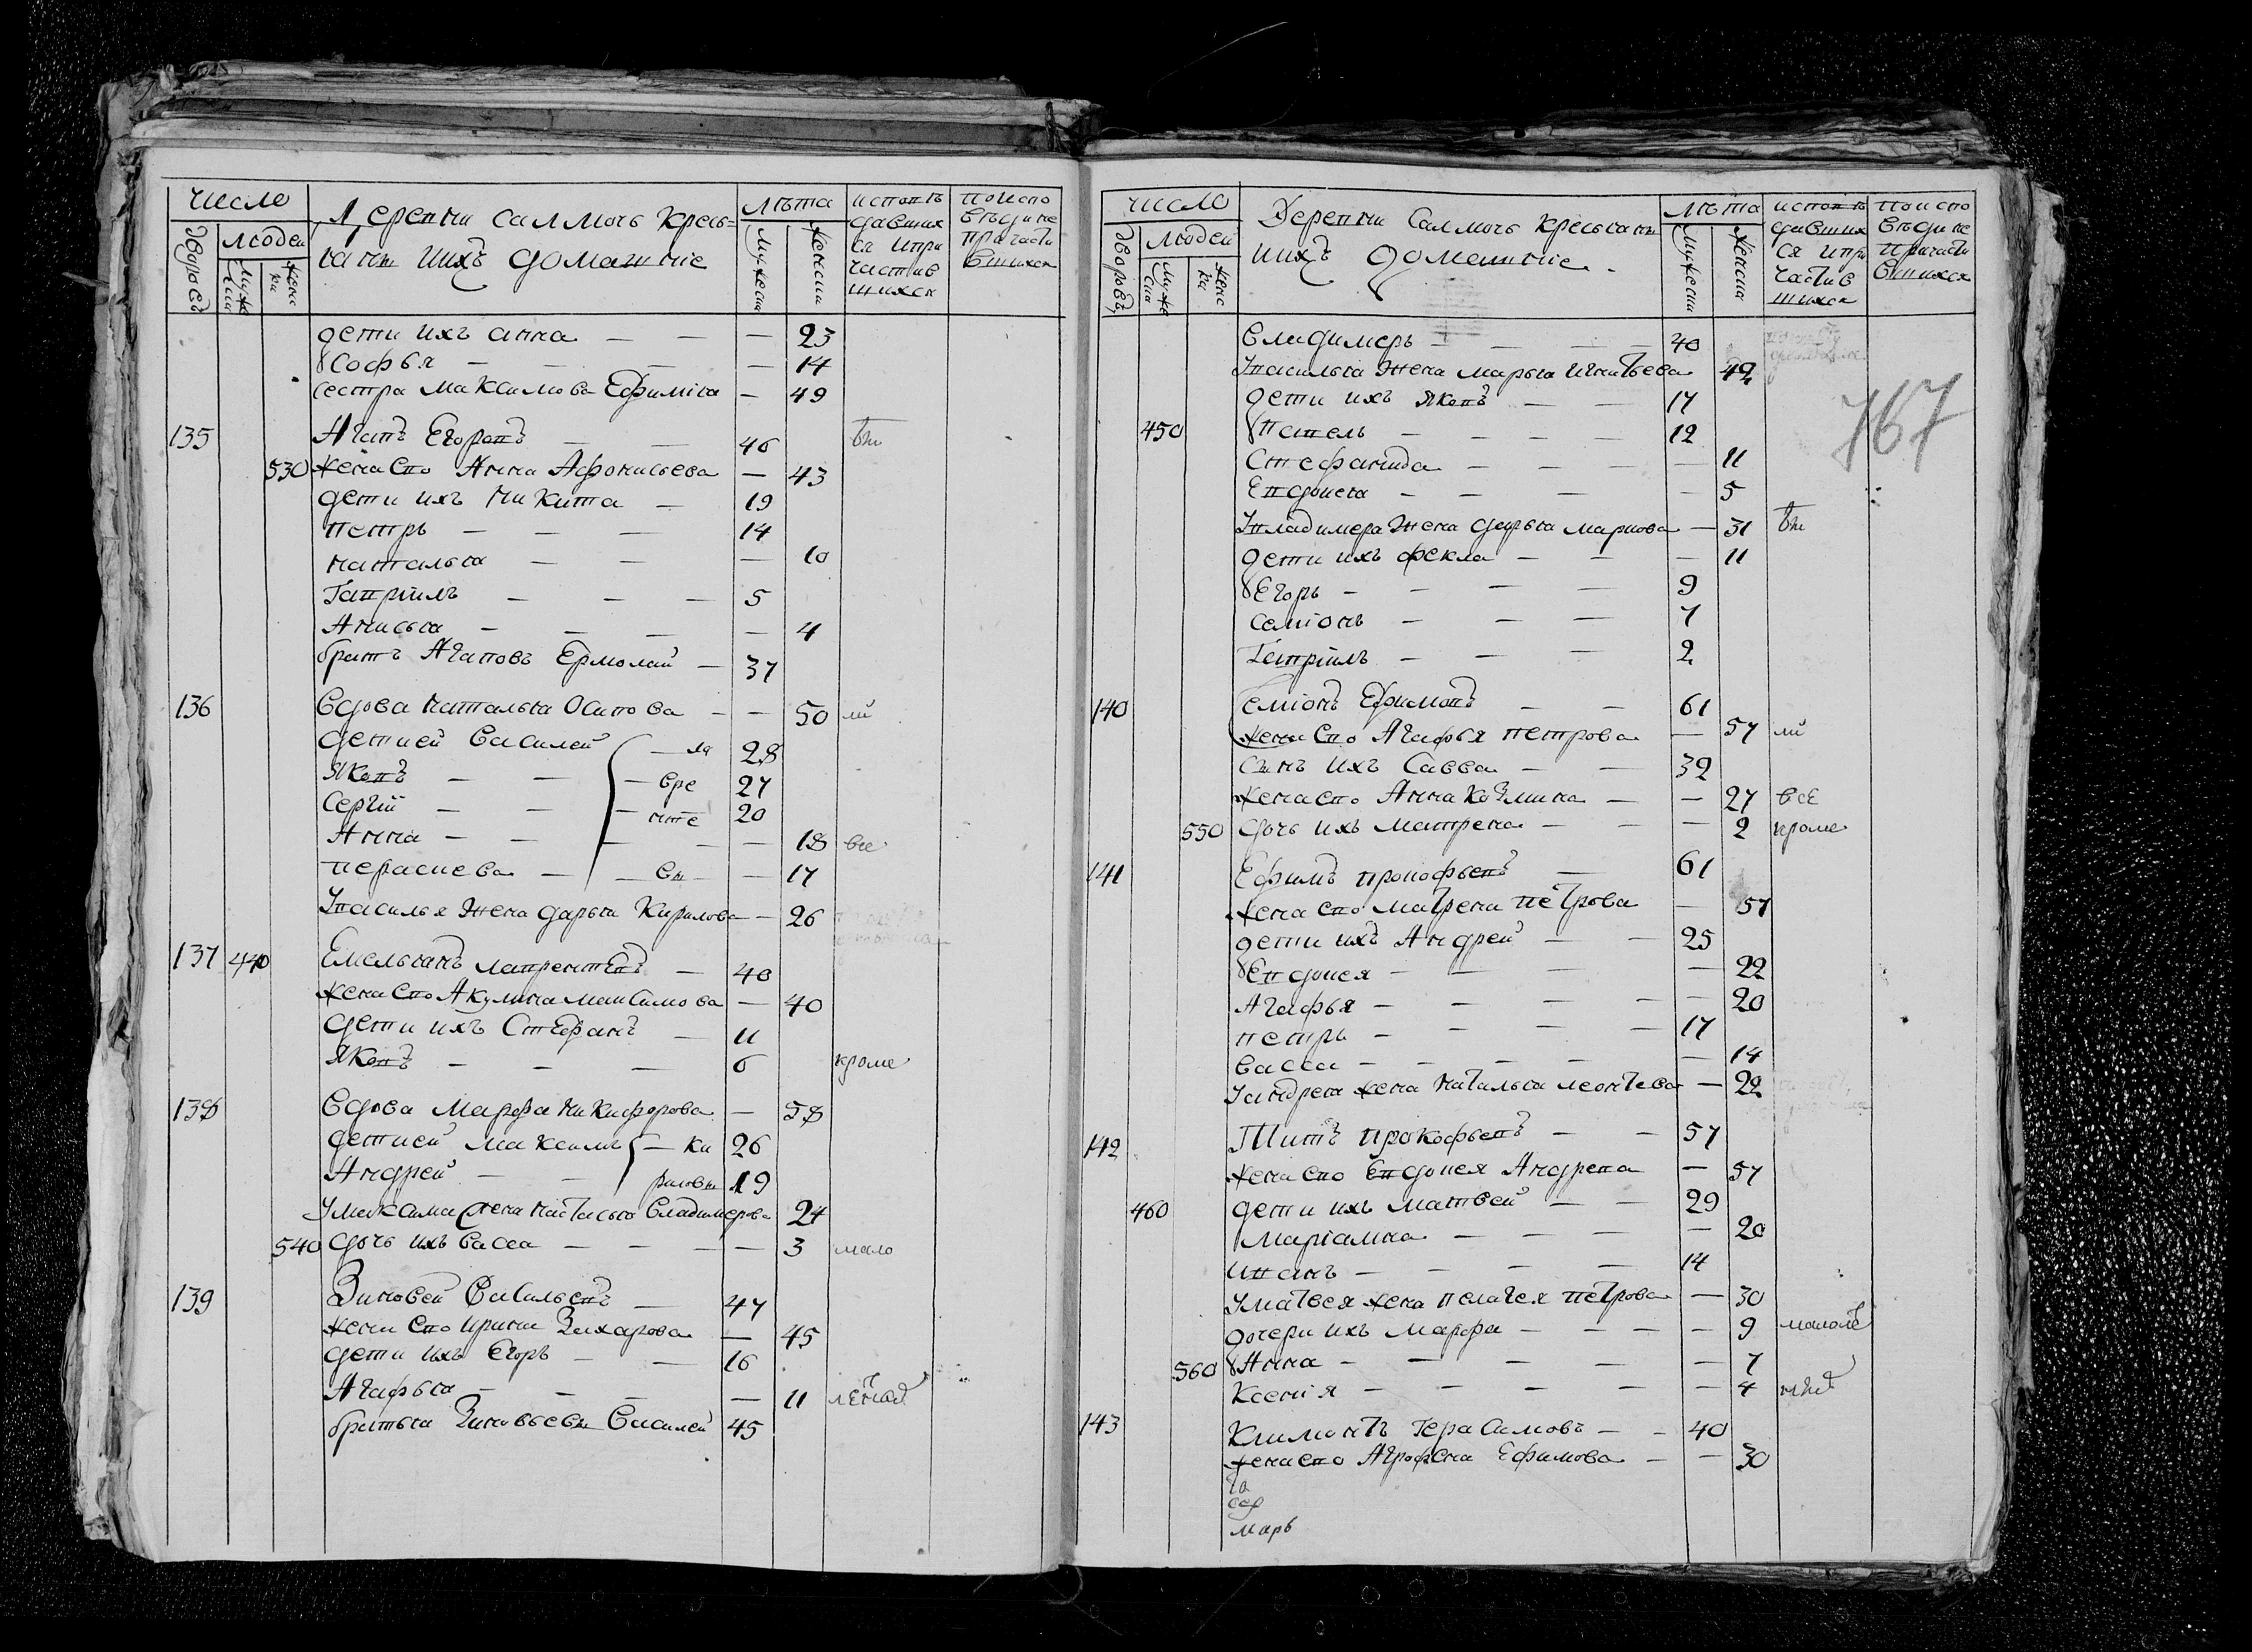 число
Деревни Саллмочь кресь=
яны ихъ домашние
лѣта
исповѣ
давших
ся ипри
частив
шихся
поиспо
вѣди не
причасти
вшихся
дворовъ
людей
муже
ски
женс
ки
мужески
женски
дети ихъ анна — — — 23
Софья — — — 14
сестра максимова Ефиміа — 49
135 Агапъ Егоровъ — — 46
530 жена его Анна Афонасьева — 43
дети ихъ никита — 19
петръ — — — 14
наталья — — — 10
Гаврiилъ — — — 5
Анисья — — — — 4
братъ Агаповъ Ермолай — 37
136 вдова наталья Осипова — — 50 ли
дети ей василей — ла 28
Яковъ — — — вре 27
Сергiй — — — нте 20
Анна — — — — 18 все
парасцева — — вы — 17
У василья жена дарья Кирилова — 26
137 440 Емельянъ лаврентевъ — 40
жена его Акулина максимова — 40
дети ихъ Стефанъ — 11
Яковъ — — — 6 кроме
138 вдова марфа никифорова — 58
дети ей максимъ — ки 26
Андрей — — риловы 19
У максима жена настасья владимерова 24
540 дочь ихъ васса — — — — 3 мало
139 Зиновей васильевъ — 47
жена его ирина Захарова — 45
дети ихъ Егоръ — — 16
Агафья — — — — 11 летнѣй
братья Зиновьевы василей 45
число
Деревни Саллмочь кресьяны
ихъ домашние
лѣта
исповѣ
давших
ся ипри
частив
шихся
поиспо
вѣди не
причасти
вшихся
дворовъ
людей
муже
ски
женс
ки
мужески
женски
767
владимеръ — — — — 40
У василья жена марья игнатьева 42
дети ихъ Яковъ — — 17
450 павелъ — — — — 12
Стефанида — — — — 11
Евдокея — — — — 5
У владимера жена дарья маркова — 31
дети ихъ фекла — — — 11
Егоръ — — — — 9
семiонъ — — — 7
Гаврiилъ — — — 2
140 семiонъ Ефимовъ — — 61
жена его Агафья петрова — 57 ли
сынъ ихъ Савва — — 32
жена его Анна Козмина — — 27 все
550 дочь ихъ матрена — — — 2 кроме
141 Ефимъ прокофьевъ — 61
жена его матрена петрова — 57
дети ихъ Андрей — — 25
Евдокея — — — — 22
Агафья — — — — — 20
петръ — — — — 17
васса — — — — — 14
У андрея жена наталья леонтева — 22
142 Титъ прокофьевъ — — 57
жена его Евдокея Андрева — 57
460 дети ихъ матвей — — 29
марiамна — — — — 20
иванъ — — — — 14
У матвея жена пелагея петрова — 30
дочери ихъ марфа — — — — 9 малолѣ
560 Анна — — — — — 7
Ксенiя — — — — — 4 тнѣй
143 Климонтъ Герасимовъ — — 40
жена его Аграфена Ефимова — — 30
марь